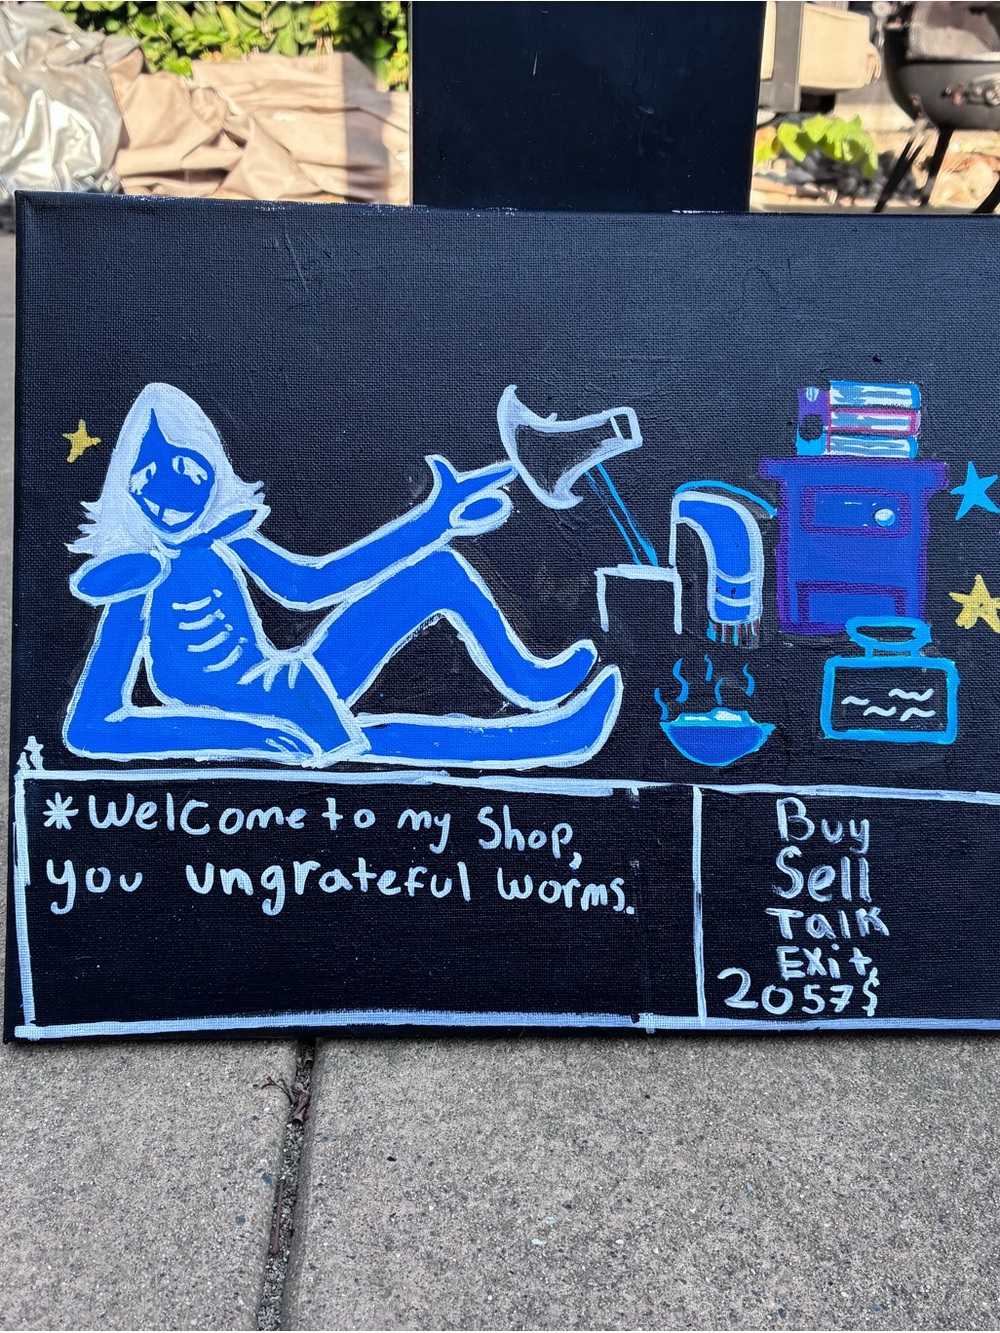 *Welcome to my Shop,
you ungrateful worms.
Buy
Sell
Talk
Exit
2057$